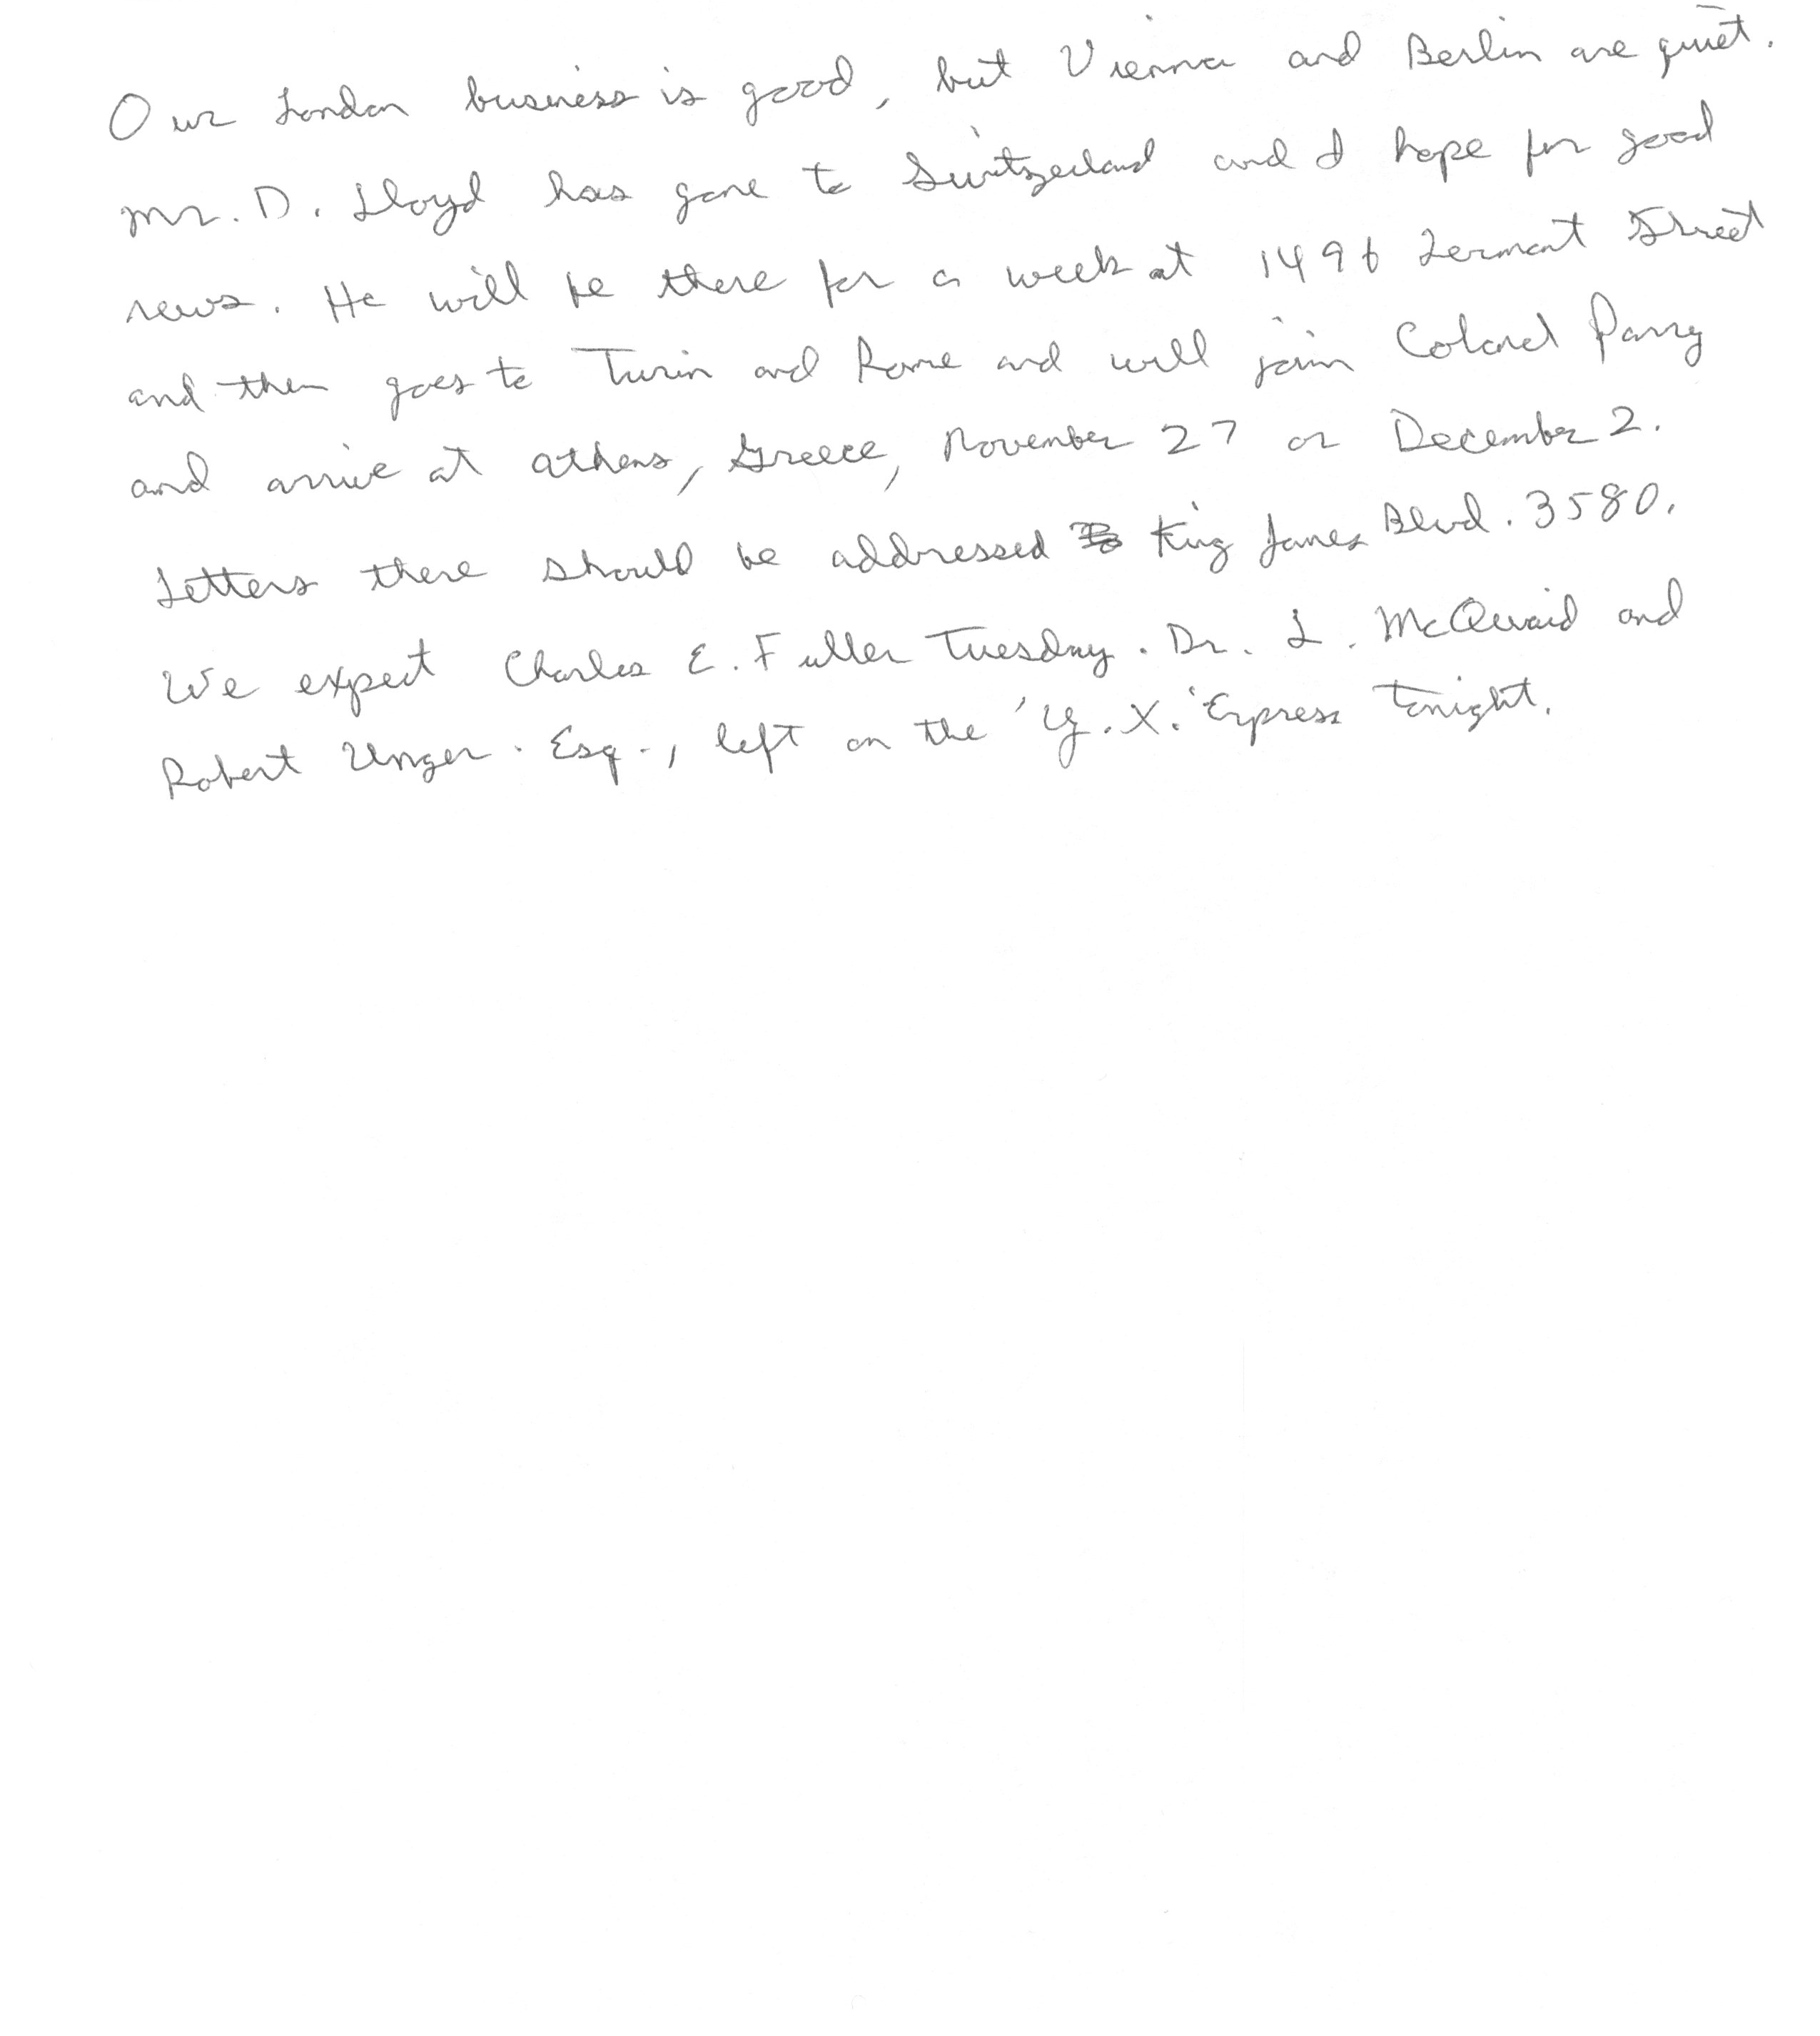 Our London business is good, but Vienna and Berlin are quiet.
Mr. D. Lloyd has gone to Switzerland and I hope for good
news. He will be there for a week at 1496 Zermont Street
and then goes to Turin and Rome and will join Colonel Parry
and arrive at Athens, Greece, November 27 or December 2.
Letters there should be addressed King James Blvd. 3580.
We expect Charles E. Fuller Tuesday. Dr. L. McQuaid and
Robert Unger. Esq., left on the 'Y.X.' Express tonight.